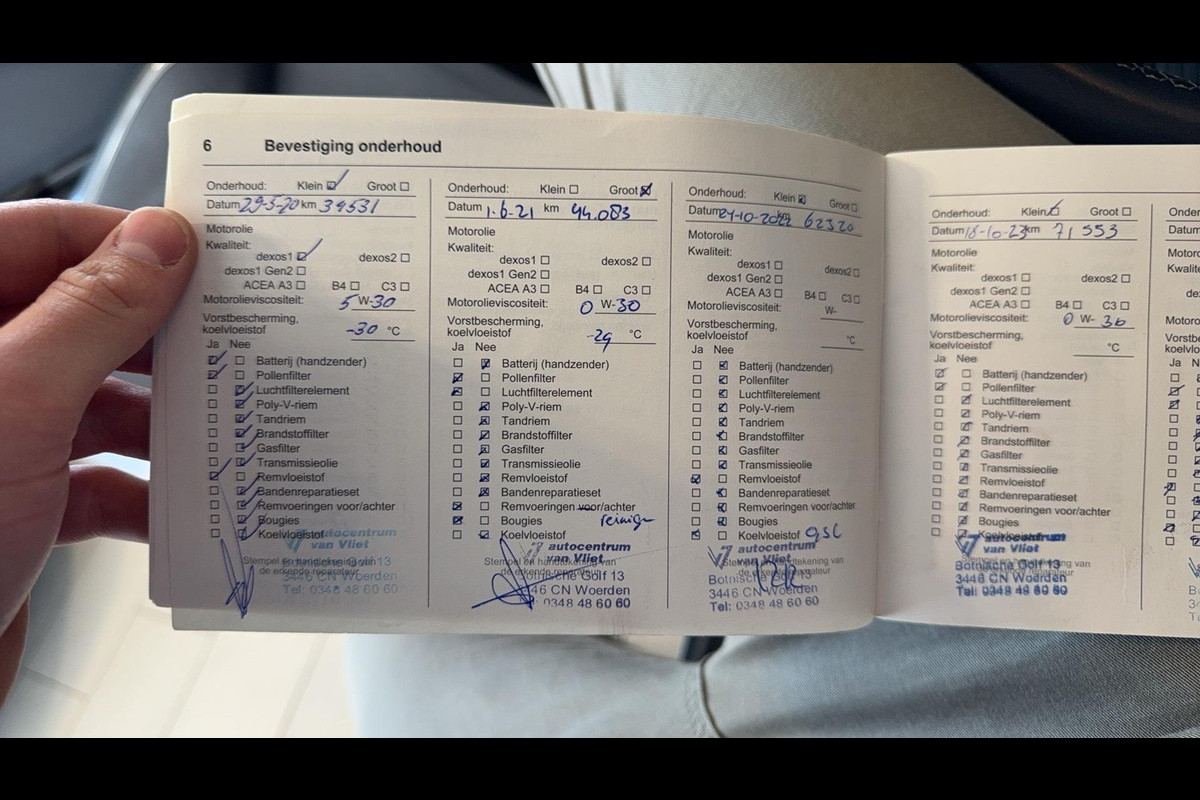 6 Bevestiging onderhoud
Onderhoud: Klein ☑ Groot ☐
Datum 29-5-20 km 39531
Motorolie
Kwaliteit:
dexos1 ☑ dexos2 ☐
dexos1 Gen2 ☐
ACEA A3 ☐ B4 ☐ C3 ☐
Motorolieviscositeit: 5 W-30
Vorstbescherming,
koelvloeistof -30 °C
Ja Nee
☑ ☐ Batterij (handzender)
☑ ☐ Pollenfilter
☐ ☑ Luchtfilterelement
☐ ☑ Poly-V-riem
☐ ☑ Tandriem
☐ ☑ Brandstoffilter
☐ ☑ Gasfilter
☐ ☑ Transmissieolie
☑ ☐ Remvloeistof
☐ ☑ Bandenreparatieset
☐ ☑ Remvoeringen voor/achter
☐ ☑ Bougies
☐ ☑ Koelvloeistof
autocentrum
van Vliet
Stempel en handtekening van
de erkende reparateur
3446 CN Woerden
Tel: 0348 48 60 60
Onderhoud: Klein ☐ Groot ☒
Datum 1-6-21 km 44.083
Motorolie
Kwaliteit:
dexos1 ☐ dexos2 ☐
dexos1 Gen2 ☐
ACEA A3 ☐ B4 ☐ C3 ☐
Motorolieviscositeit: 0 W-30
Vorstbescherming,
koelvloeistof -29 °C
Ja Nee
☐ ☑ Batterij (handzender)
☑ ☐ Pollenfilter
☑ ☐ Luchtfilterelement
☐ ☑ Poly-V-riem
☐ ☑ Tandriem
☐ ☑ Brandstoffilter
☐ ☑ Gasfilter
☐ ☑ Transmissieolie
☐ ☑ Remvloeistof
☐ ☑ Bandenreparatieset
☑ ☐ Remvoeringen voor/achter
☑ ☐ Bougies
☐ ☑ Koelvloeistof
autocentrum
van Vliet
Stempel en handtekening van
de erkende reparateur
Botnische Golf 13
3446 CN Woerden
Tel: 0348 48 60 60
Onderhoud: Klein ☒ Groot ☐
Datum 24-10-2022 km 62320
Motorolie
Kwaliteit:
dexos1 ☐ dexos2 ☐
dexos1 Gen2 ☐
ACEA A3 ☐ B4 ☐ C3 ☐
Motorolieviscositeit: W-
Vorstbescherming,
koelvloeistof °C
Ja Nee
☐ ☑ Batterij (handzender)
☐ ☑ Pollenfilter
☐ ☑ Luchtfilterelement
☐ ☑ Poly-V-riem
☐ ☑ Tandriem
☐ ☑ Brandstoffilter
☐ ☑ Gasfilter
☐ ☑ Transmissieolie
☑ ☐ Remvloeistof
☐ ☑ Bandenreparatieset
☐ ☑ Remvoeringen voor/achter
☐ ☑ Bougies
☑ ☐ Koelvloeistof
autocentrum
van Vliet
Botnische Golf 13
3446 CN Woerden
Tel: 0348 48 60 60
Onderhoud: Klein ☑ Groot ☐
Datum 18-10-23 km 71553
Motorolie
Kwaliteit:
dexos1 ☐ dexos2 ☐
dexos1 Gen2 ☐
ACEA A3 ☐ B4 ☐ C3 ☐
Motorolieviscositeit: 0 W- 30
Vorstbescherming,
koelvloeistof °C
Ja Nee
☑ ☐ Batterij (handzender)
☑ ☐ Pollenfilter
☐ ☑ Luchtfilterelement
☐ ☑ Poly-V-riem
☐ ☑ Tandriem
☐ ☑ Brandstoffilter
☐ ☑ Gasfilter
☐ ☑ Transmissieolie
☐ ☑ Remvloeistof
☐ ☑ Bandenreparatieset
☐ ☑ Remvoeringen voor/achter
☐ ☑ Bougies
☐ ☑ Koelvloeistof
autocentrum
van Vliet
Botnische Golf 13
3446 CN Woerden
Tel: 0348 48 60 60